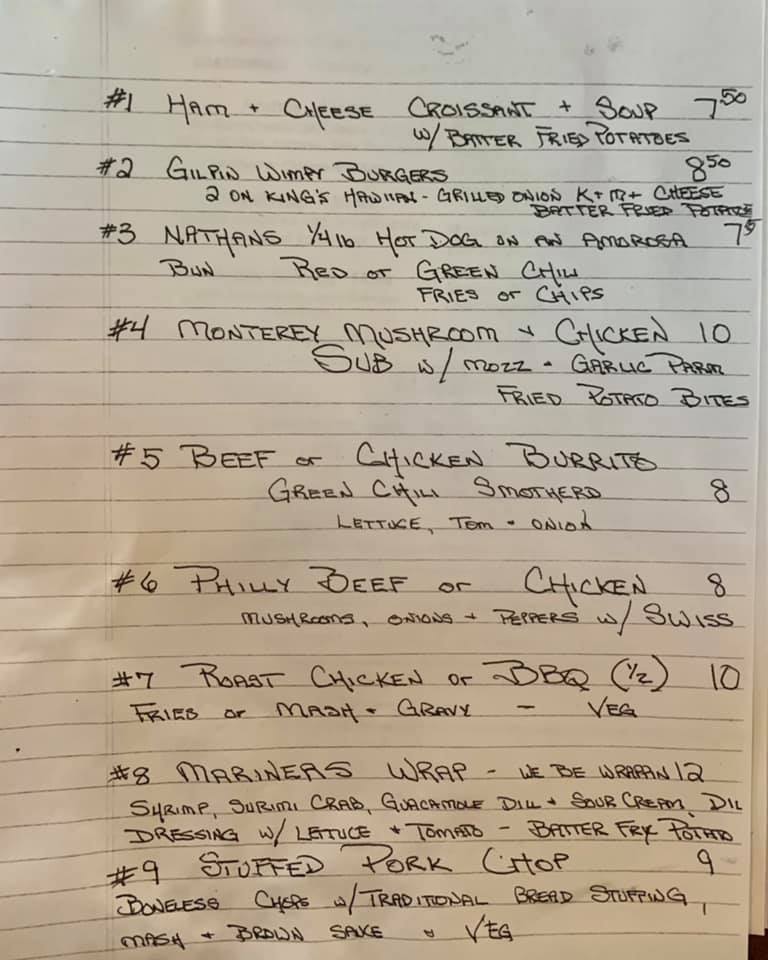 #1 HAM + CHEESE CROISSANT + SOUP 7 50
W/ BATTER FRIED POTATOES
#2 GILPIN WIMPY BURGERS 8 50
2 ON KING'S HAWIIAN - GRILLED ONION K+M+ CHEESE
BATTER FRIED POTATOE
#3 NATHANS 1/4 lb HOT DOG ON AN AMOROSA 7 5
BUN RED or GREEN CHILI
FRIES or CHIPS
#4 MONTEREY MUSHROOM + CHICKEN 10
SUB W/ MOZZ + GARLIC PARM
FRIED POTATO BITES
#5 BEEF or CHICKEN BURRITO
GREEN CHILI SMOTHERD 8
LETTUCE, TOM + ONION
#6 PHILLY BEEF or CHICKEN 8
MUSHROOMS, ONIONS + PEPPERS W/ SWISS
#7 ROAST CHICKEN or BBQ (1/2) 10
FRIES or MASH + GRAVY - VEG
#8 MARINERS WRAP - WE BE WRAPAN 12
SHRIMP, SURIMI CRAB, GUACAMOLE DILL + SOUR CREAM, DIL
DRESSING W/ LETTUCE + TOMATO - BATTER FRY POTATO
#9 STUFFED PORK CHOP 9
BONELESS CHOPS W/ TRADITIONAL BREAD STUFFING,
MASH + BROWN SAUCE + VEG